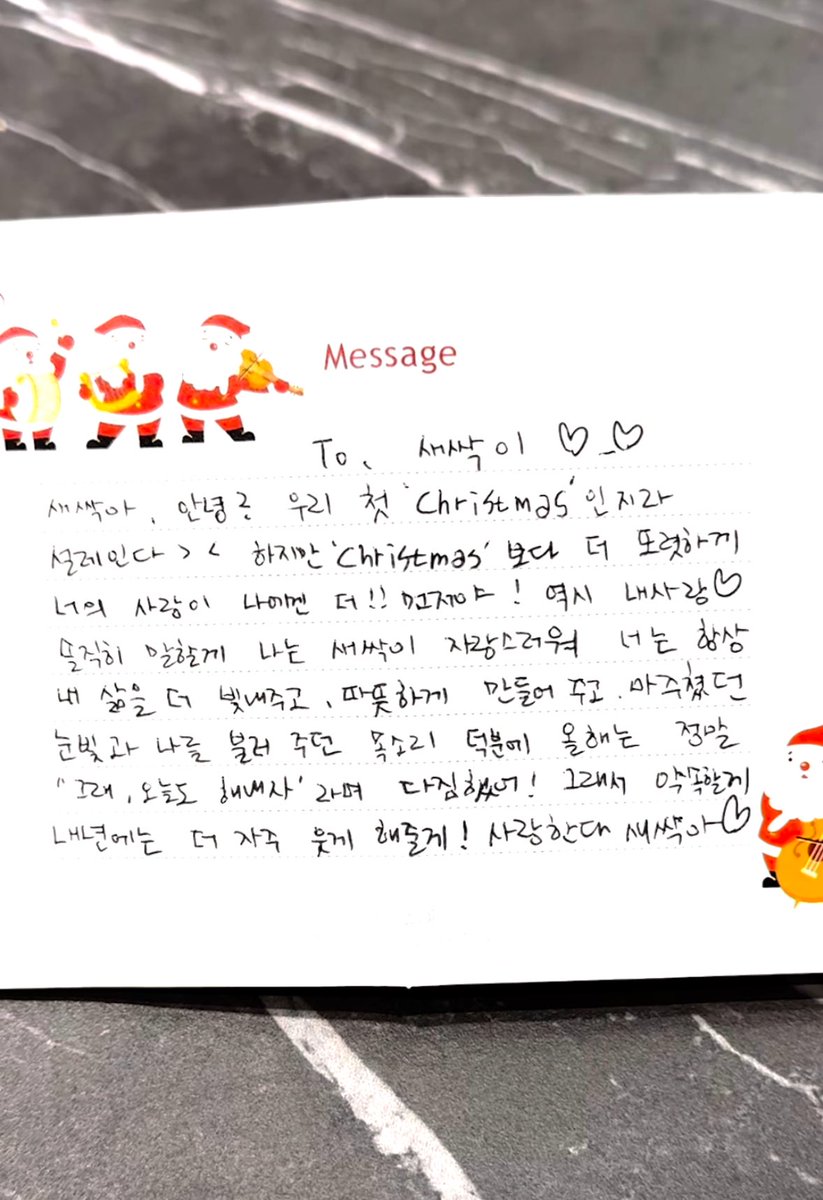 Message
To. 새싹이 ♡_♡
새싹아, 안녕? 우리 첫 'Christmas'인지라
설레인다 > < 하지만 'Christmas' 보다 더 또렷하게
너의 사랑이 나에겐 더!! 먼저야! 역시 내사랑♡
솔직히 말할게 나는 새싹이 자랑스러워 너는 항상
내 삶을 더 빛내주고, 따뜻하게 만들어 주고. 마주쳤던
눈빛과 나를 불러 주던 목소리 덕분에 올해는 정말
"그래, 오늘도 해내자'라며 다짐했어! 그래서 약속할게
내년에는 더 자주 웃게 해줄게! 사랑한다 새싹아♡